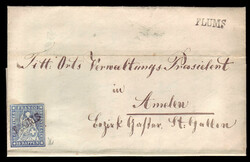 FLUMS
Titt Orts Verwaltungs Präsident
in
Amden
Bezirk Gaster St. Gallen